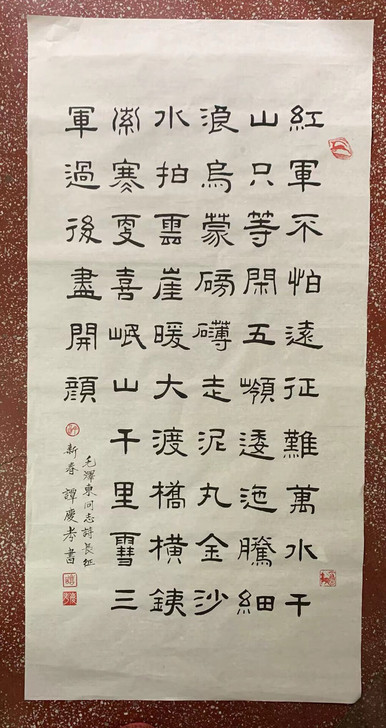 紅軍不怕遠征難萬水千
山只等閑五嶺逶迤騰細
浪烏蒙磅礴走泥丸金沙
水拍雲崖暖大渡橋橫銕
索寒更喜岷山千里雪三
軍過後盡開顏
毛澤東同志詩長征
新春 譚慶孝書